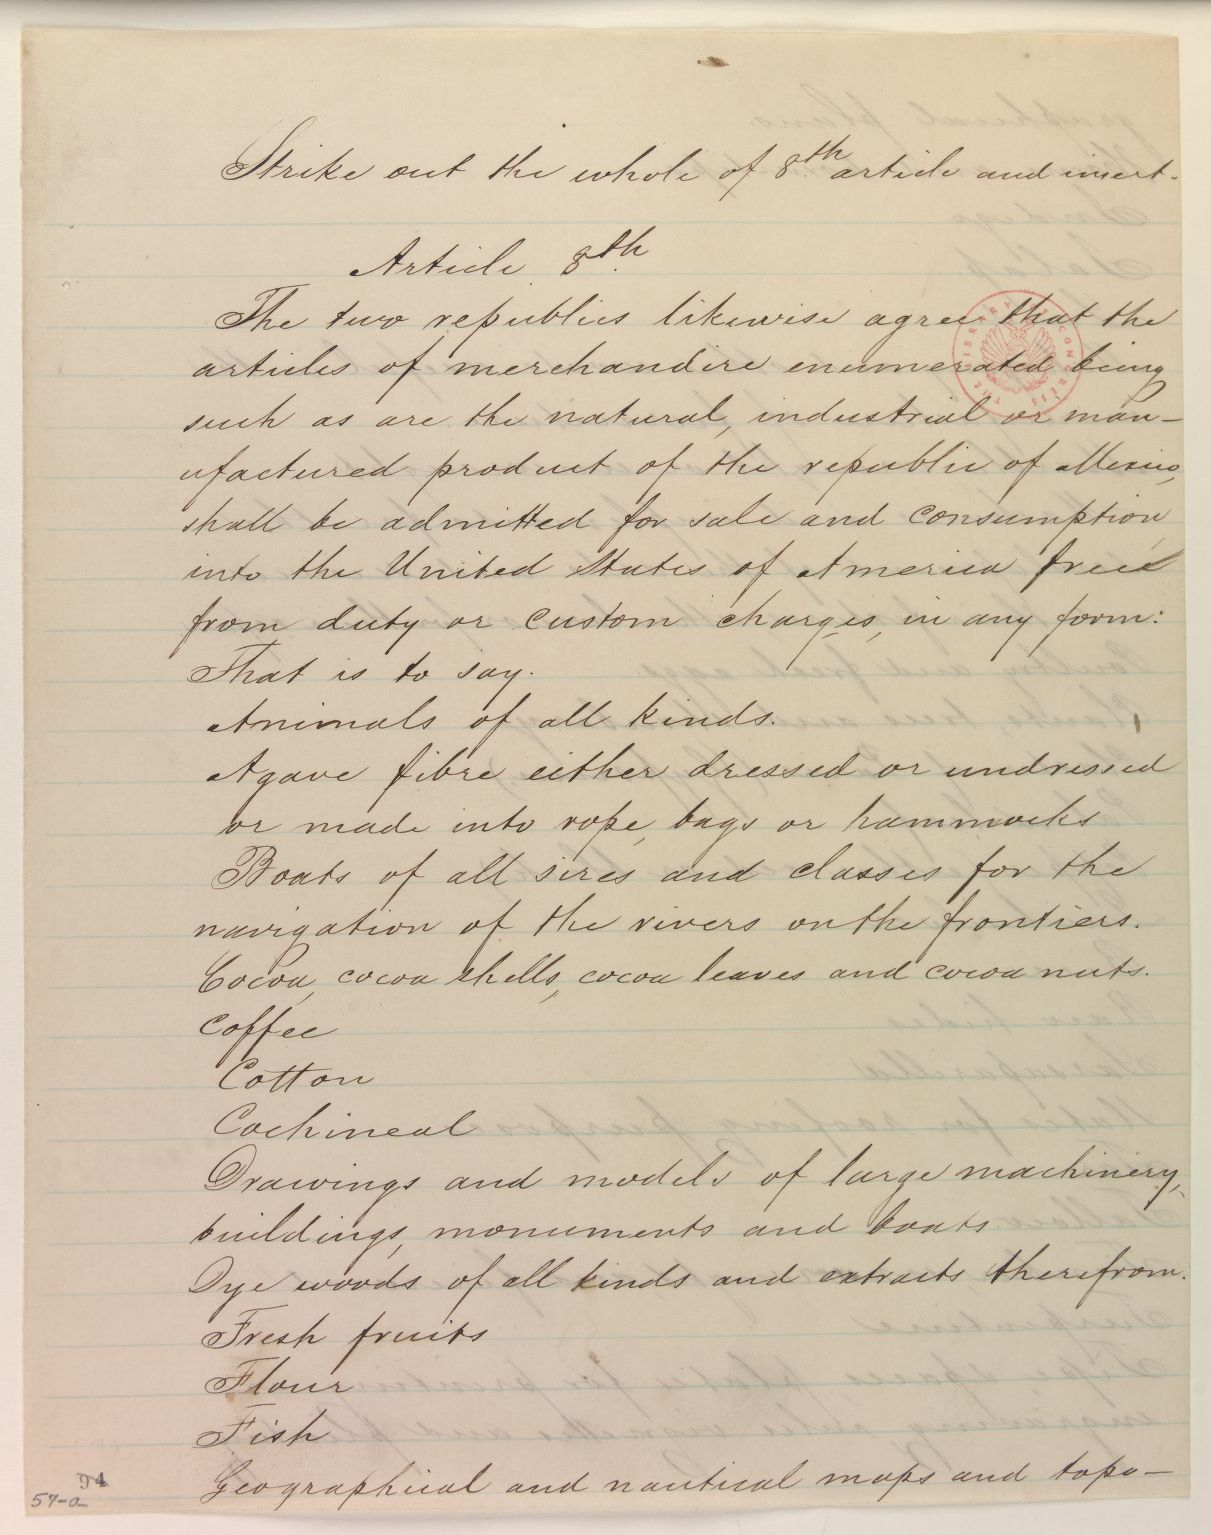 Strike out the whole of 8th article and insert.
Article 8th
The two republics likewise agree that the
articles of merchandise enumerated being
such as are the natural, industrial or man-
ufactured product of the republic of Mexico,
shall be admitted for sale and consumption
into the United States of America free
from duty or custom charges, in any form:
That is to say.
Animals of all kinds.
Agave fibre either dressed or undressed
or made into rope, bags or hammocks
Boats of all sizes and classes for the
navigation of the rivers on the frontiers.
Cocoa, cocoa shells, cocoa leaves and cocoa nuts.
Coffee
Cotton
Cochineal
Drawings and models of large machinery,
buildings, monuments and boats
Dye woods of all kinds and extracts therefrom.
Fresh fruits
Flour
Fish
Geographical and nautical maps and topo-
94
57-a